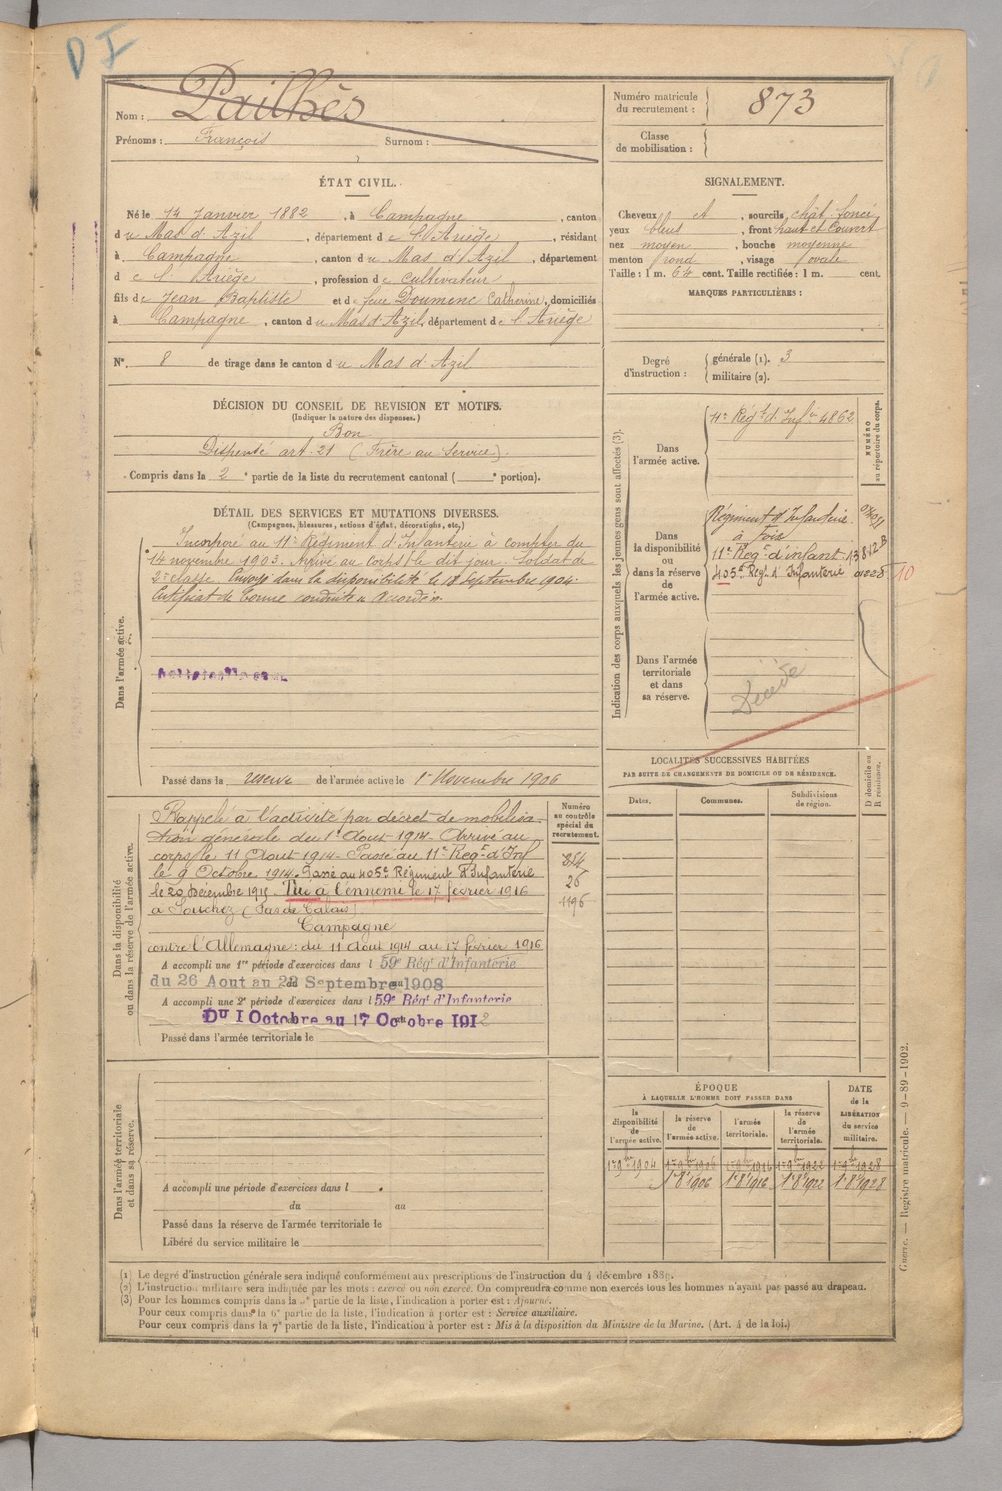 D I
Nom : Pailhès
Prénoms : François Surnom :
Numéro matricule du recrutement : 873
Classe de mobilisation :
ÉTAT CIVIL.
Né le 14 Janvier 1882, à Campagne, canton
du Mas d'Azil, département de l'Ariège, résidant
à Campagne, canton du Mas d'Azil, département
de l'Ariège, profession de cultivateur
fils de Jean Baptiste et de feue Doumenc Catherine, domiciliés
à Campagne, canton du Mas d'Azil, département de l'Ariège
N° 8 de tirage dans le canton du Mas d'Azil
SIGNALEMENT.
Cheveux et, sourcils chât. foncé
yeux bleus, front haut et couvert
nez moyen, bouche moyenne
menton rond, visage ovale
Taille : 1 m. 64 cent. Taille rectifiée : 1 m. cent.
MARQUES PARTICULIÈRES :
Degré d'instruction : générale (1). 3
militaire (2).
DÉCISION DU CONSEIL DE REVISION ET MOTIFS.
(Indiquer la nature des dispenses.)
Bon
Dispensé art. 21 (Frère au Service).
Compris dans la 2e partie de la liste du recrutement cantonal ( e portion).
DÉTAIL DES SERVICES ET MUTATIONS DIVERSES.
(Campagnes, blessures, actions d'éclat, décorations, etc.)
Dans l'armée active.
Incorporé au 11e Régiment d'Infanterie à compter du
14 novembre 1903. Arrivé au corps le dit jour. Soldat de
2e classe. Envoyé dans la disponibilité le 18 Septembre 1904.
Certificat de bonne conduite "Accordé".
Passé dans la réserve de l'armée active le 1er Novembre 1906
Indication des corps auxquels les jeunes gens sont affectés (3).
NUMÉRO au répertoire du corps.
Dans l'armée active.
11e Régt d'Infie 4862
Dans la disponibilité ou dans la réserve de l'armée active.
Régiment d'Infanterie
à Foix
11e Régt d'infant.
405e Régt d'Infanterie 01228 10
Dans l'armée territoriale et dans sa réserve.
Décédé
LOCALITÉS SUCCESSIVES HABITÉES
PAR SUITE DE CHANGEMENTS DE DOMICILE OU DE RÉSIDENCE.
Dates. Communes. Subdivisions de région. D domicile ou R résidence.
Dans la disponibilité ou dans la réserve de l'armée active.
Numéro au contrôle spécial du recrutement.
Rappelé à l'activité par décret de mobilisa-
tion générale du 1er Aout 1914. Arrivé au
corps le 11 Aout 1914. Passé au 11e Regt d'Inf
le 9 Octobre 1914. Passé au 405e Régiment d'Infanterie
le 20 Décembre 1915. Tué à l'ennemi le 17 février 1916
à Souchez (Pas de Calais)
Campagne
contre l'Allemagne : du 11 Aout 1914 au 17 février 1916
26
1196
A accompli une 1re période d'exercices dans l 59e Régt d'Infanterie
du 26 Aout au 22 Septembre 1908
A accompli une 2e période d'exercices dans l 59e Régt d'Infanterie
Du 1 Octobre au 17 Octobre 1912
Passé dans l'armée territoriale le
Dans l'armée territoriale et dans sa réserve.
A accompli une période d'exercices dans l
du au
Passé dans la réserve de l'armée territoriale le
Libéré du service militaire le
ÉPOQUE
À LAQUELLE L'HOMME DOIT PASSER DANS
la disponibilité de l'armée active. la réserve de l'armée active. l'armée territoriale. la réserve de l'armée territoriale. DATE de la LIBÉRATION du service militaire.
1er 9bre 1904 1er 9bre 1906 1er 9bre 1916 1er 9bre 1922 1er 9bre 1928
1er 8bre 1906 1er 8bre 1916 1er 8bre 1922 1er 8bre 1928
Guerre. — Registre matricule. — 9-89-1902.
(1) Le degré d'instruction générale sera indiqué conformément aux prescriptions de l'instruction du 4 décembre 1889.
(2) L'instruction militaire sera indiquée par les mots : exercé ou non exercé. On comprendra comme non exercés tous les hommes n'ayant pas passé au drapeau.
(3) Pour les hommes compris dans la 5e partie de la liste, l'indication à porter est : Ajourné.
Pour ceux compris dans la 6e partie de la liste, l'indication à porter est : Service auxiliaire.
Pour ceux compris dans la 7e partie de la liste, l'indication à porter est : Mis à la disposition du Ministre de la Marine. (Art. 4 de la loi.)